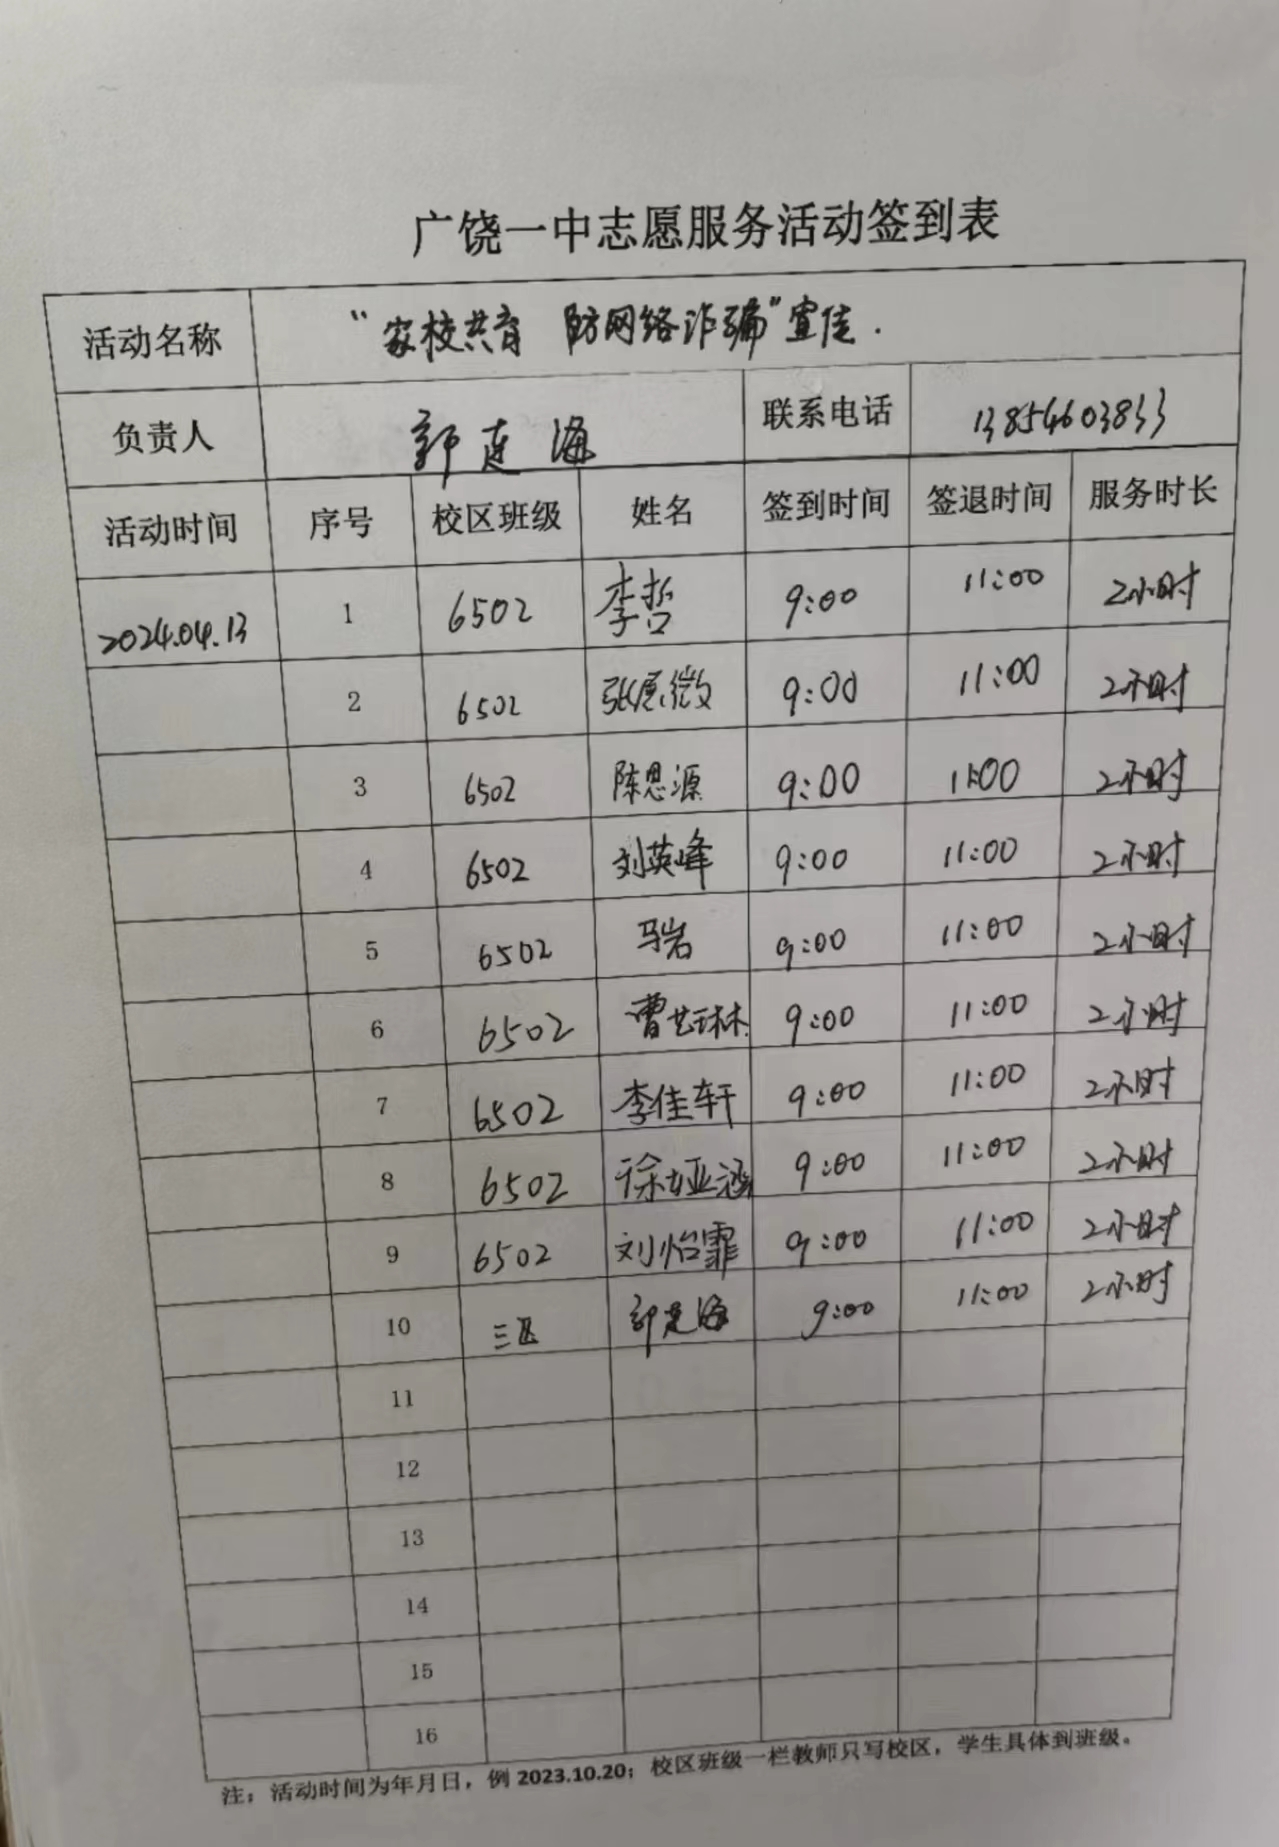 广饶一中志愿服务活动签到表
活动名称 “家校共育 防网络诈骗”宣传.
负责人 郭连海 联系电话 13854603833
活动时间 序号 校区班级 姓名 签到时间 签退时间 服务时长
2024.04.13 1 6502 李哲 9:00 11:00 2小时
2 6502 9:00 11:00 2小时
3 6502 陈思源 9:00 11:00 2小时
4 6502 刘英峰 9:00 11:00 2小时
5 6502 马岩 9:00 11:00 2小时
6 6502 曹艺琳 9:00 11:00 2小时
7 6502 李佳轩 9:00 11:00 2小时
8 6502 徐娅涵 9:00 11:00 2小时
9 6502 刘怡霏 9:00 11:00 2小时
10 三区 郭连海 9:00 11:00 2小时
11
12
13
14
15
16
注：活动时间为年月日，例 2023.10.20；校区班级一栏教师只写校区，学生具体到班级。